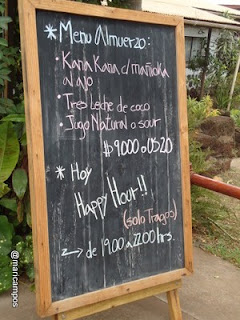 * Menu Almuerzo:
• Kana Kana c/ mañioka
al ajo
• Tres Leche de coco
• Jugo Natural o sour
$9.000 o US20
* Hoy
Happy Hour!!
(solo Tragos)
→ de 19.00 a 22.00 hrs.
@maricampos